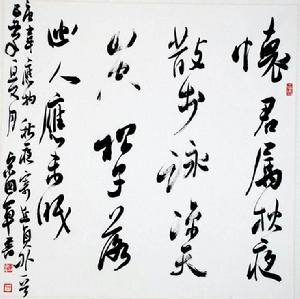 懷君屬秋夜
散步詠涼天
山空松子落
幽人應未眠
唐韋應物秋夜寄丘員外一首